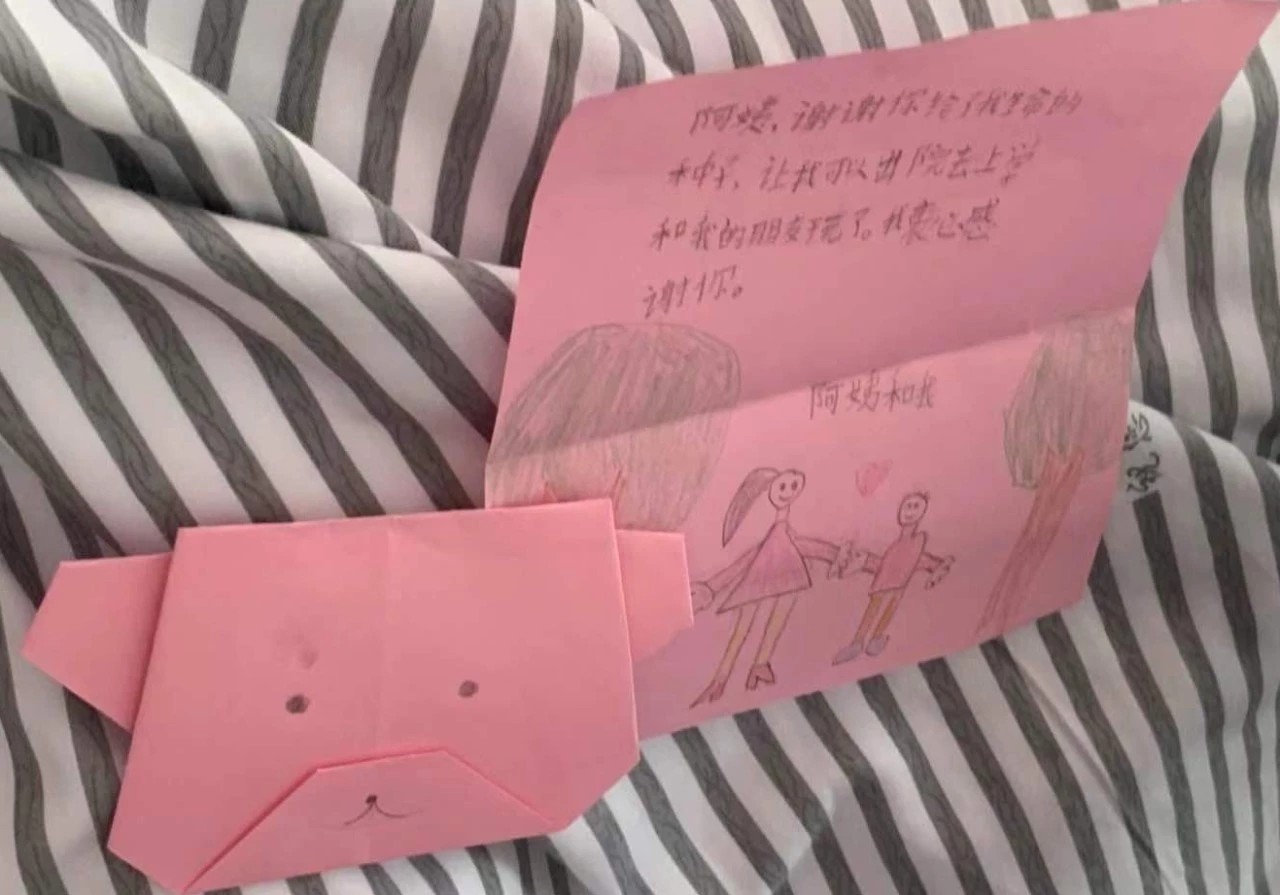 阿姨，谢谢你给了我生命的
种子，让我可以出院去上学
和我的朋友玩了。我衷心感
谢你。
阿姨和我